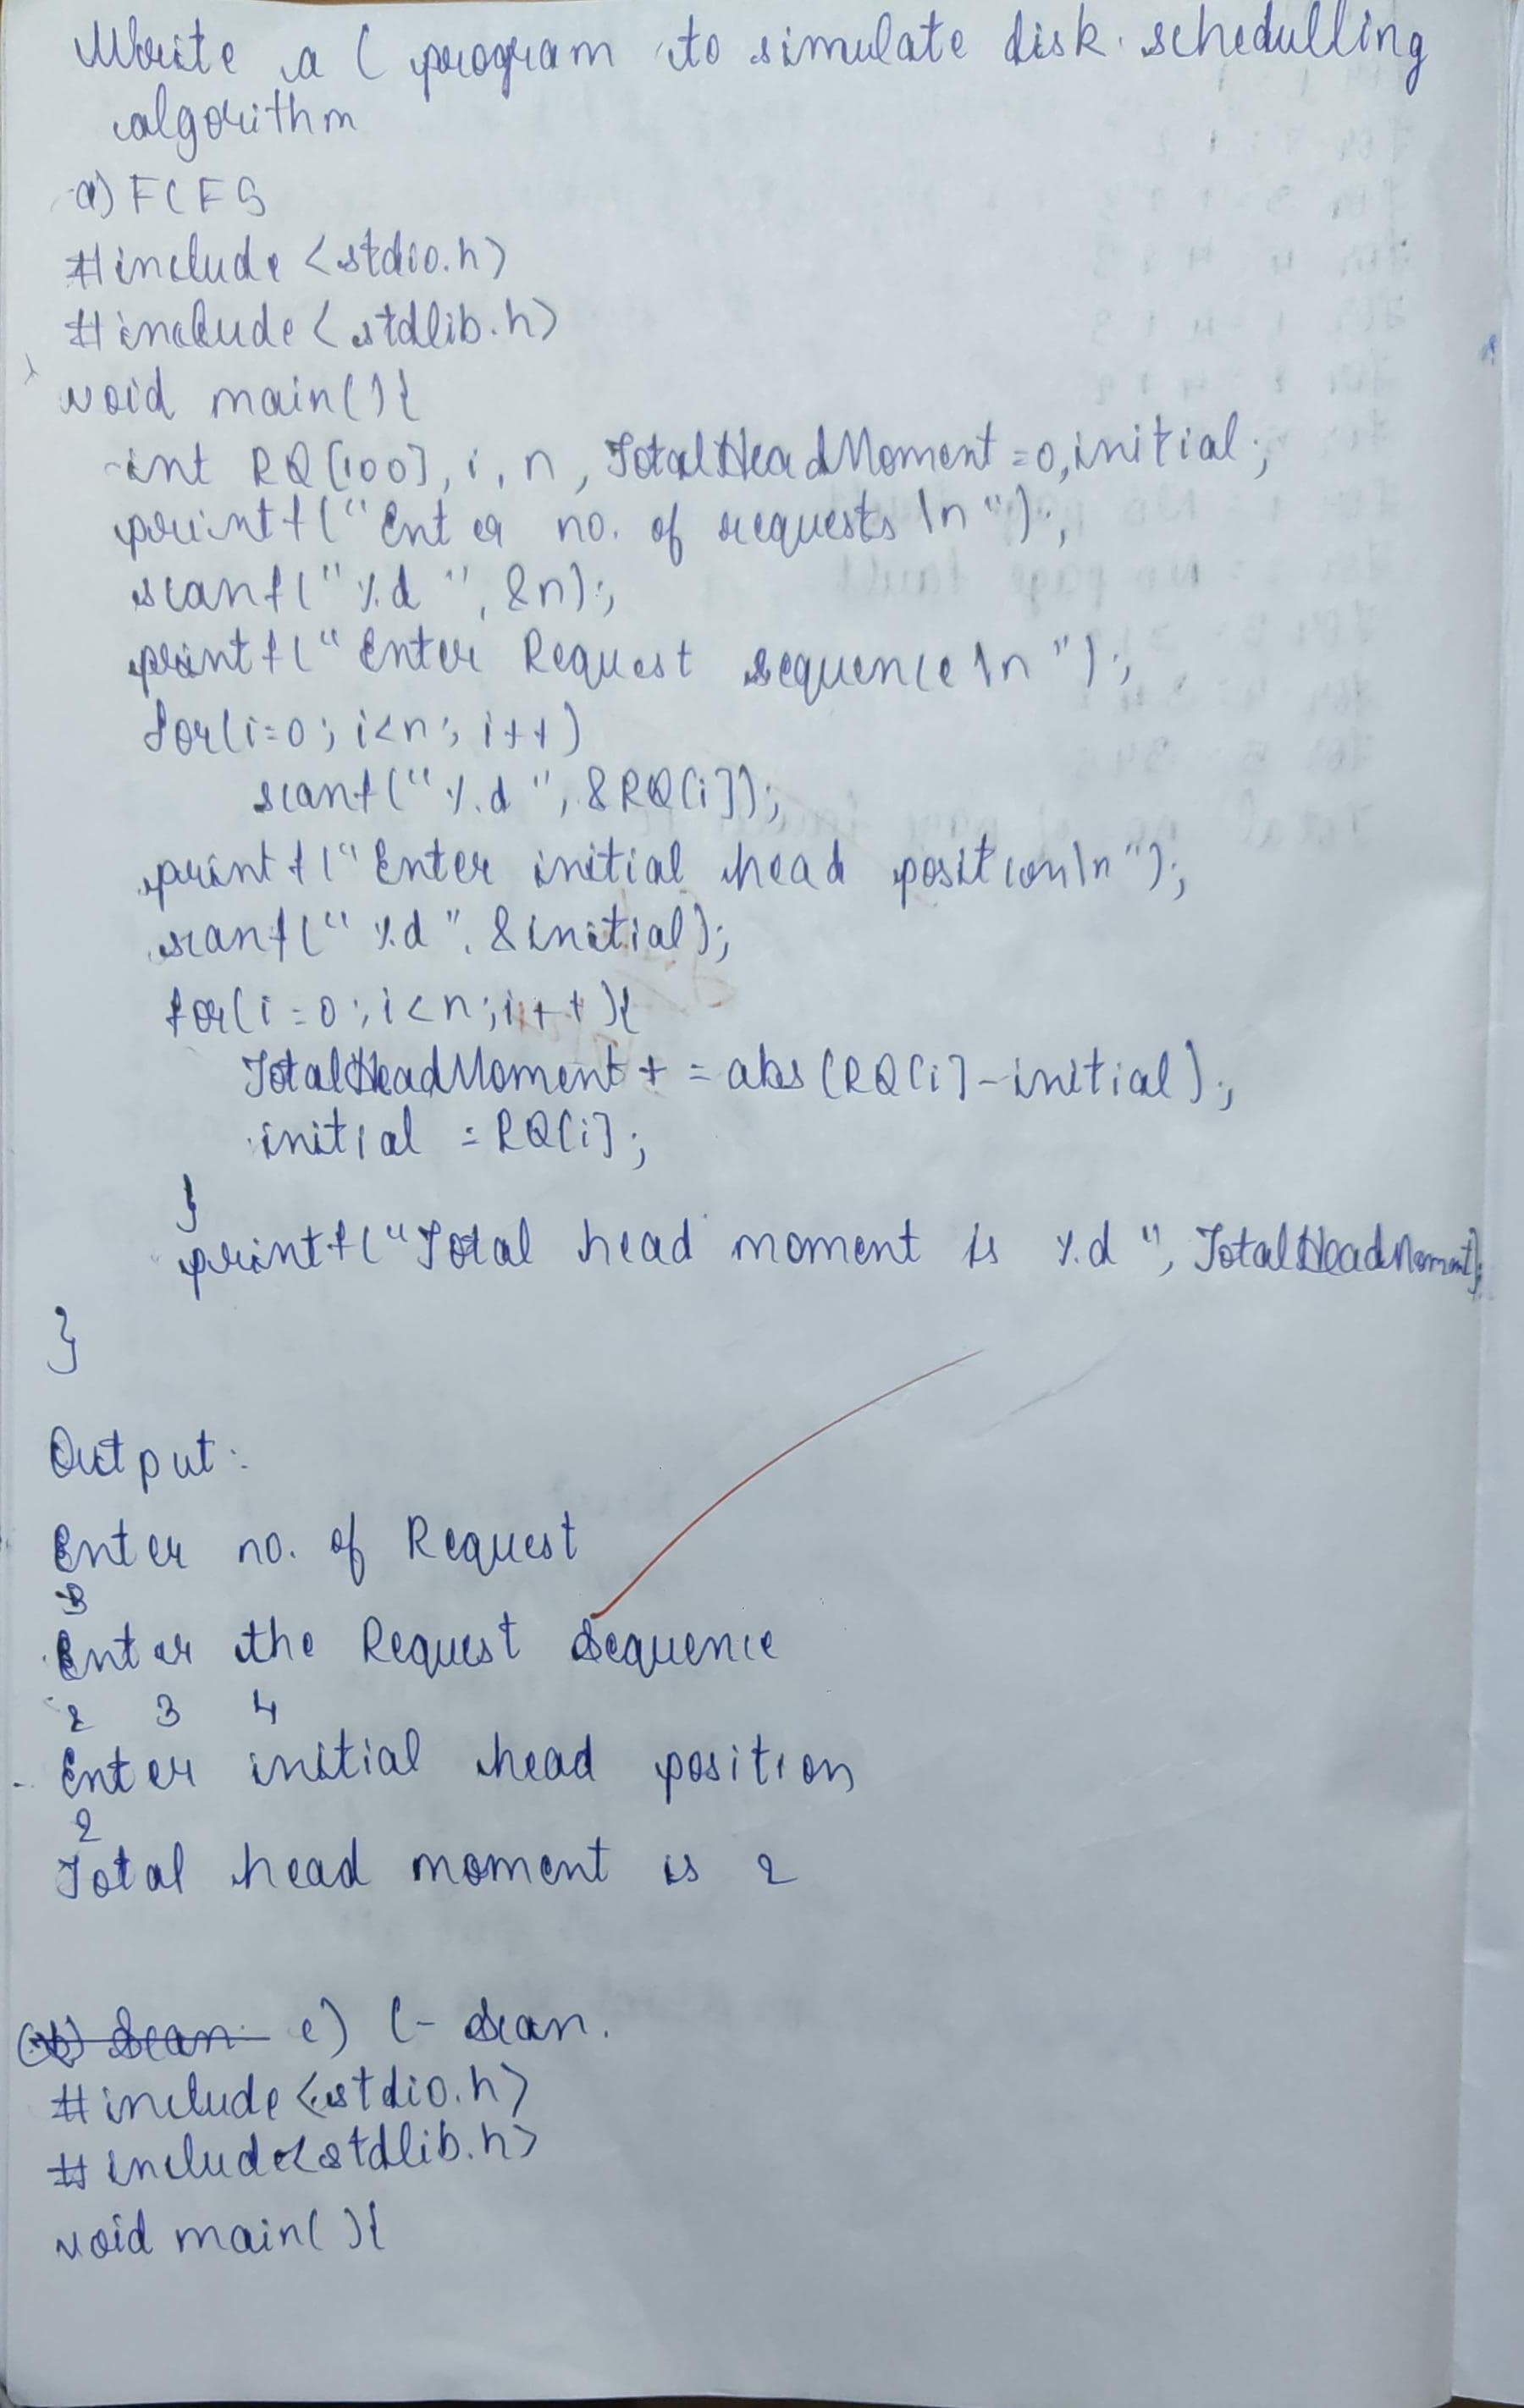 Write a C program to simulate disk schedulling
algorithm
a) FCFS
#include <stdio.h>
#include <stdlib.h>
void main(){
int RQ[100], i, n, TotalHeadMoment=0, initial;
printf("Enter no. of requests \n");
scanf("%d", &n);
printf("Enter Request sequence \n");
for(i=0; i<n; i++)
scanf("%d", &RQ[i]);
printf("Enter initial head position\n");
scanf("%d", &initial);
for(i=0; i<n; i++){
TotalHeadMoment += abs(RQ[i]-initial);
initial = RQ[i];
}
printf("Total head moment is %d", TotalHeadMoment);
}
Output:
Enter no. of Request
3
Enter the Request Sequence
2 3 4
Enter initial head position
2
Total head moment is 2
(b) Scan c) C-Scan.
#include <stdio.h>
#include <stdlib.h>
void main(){